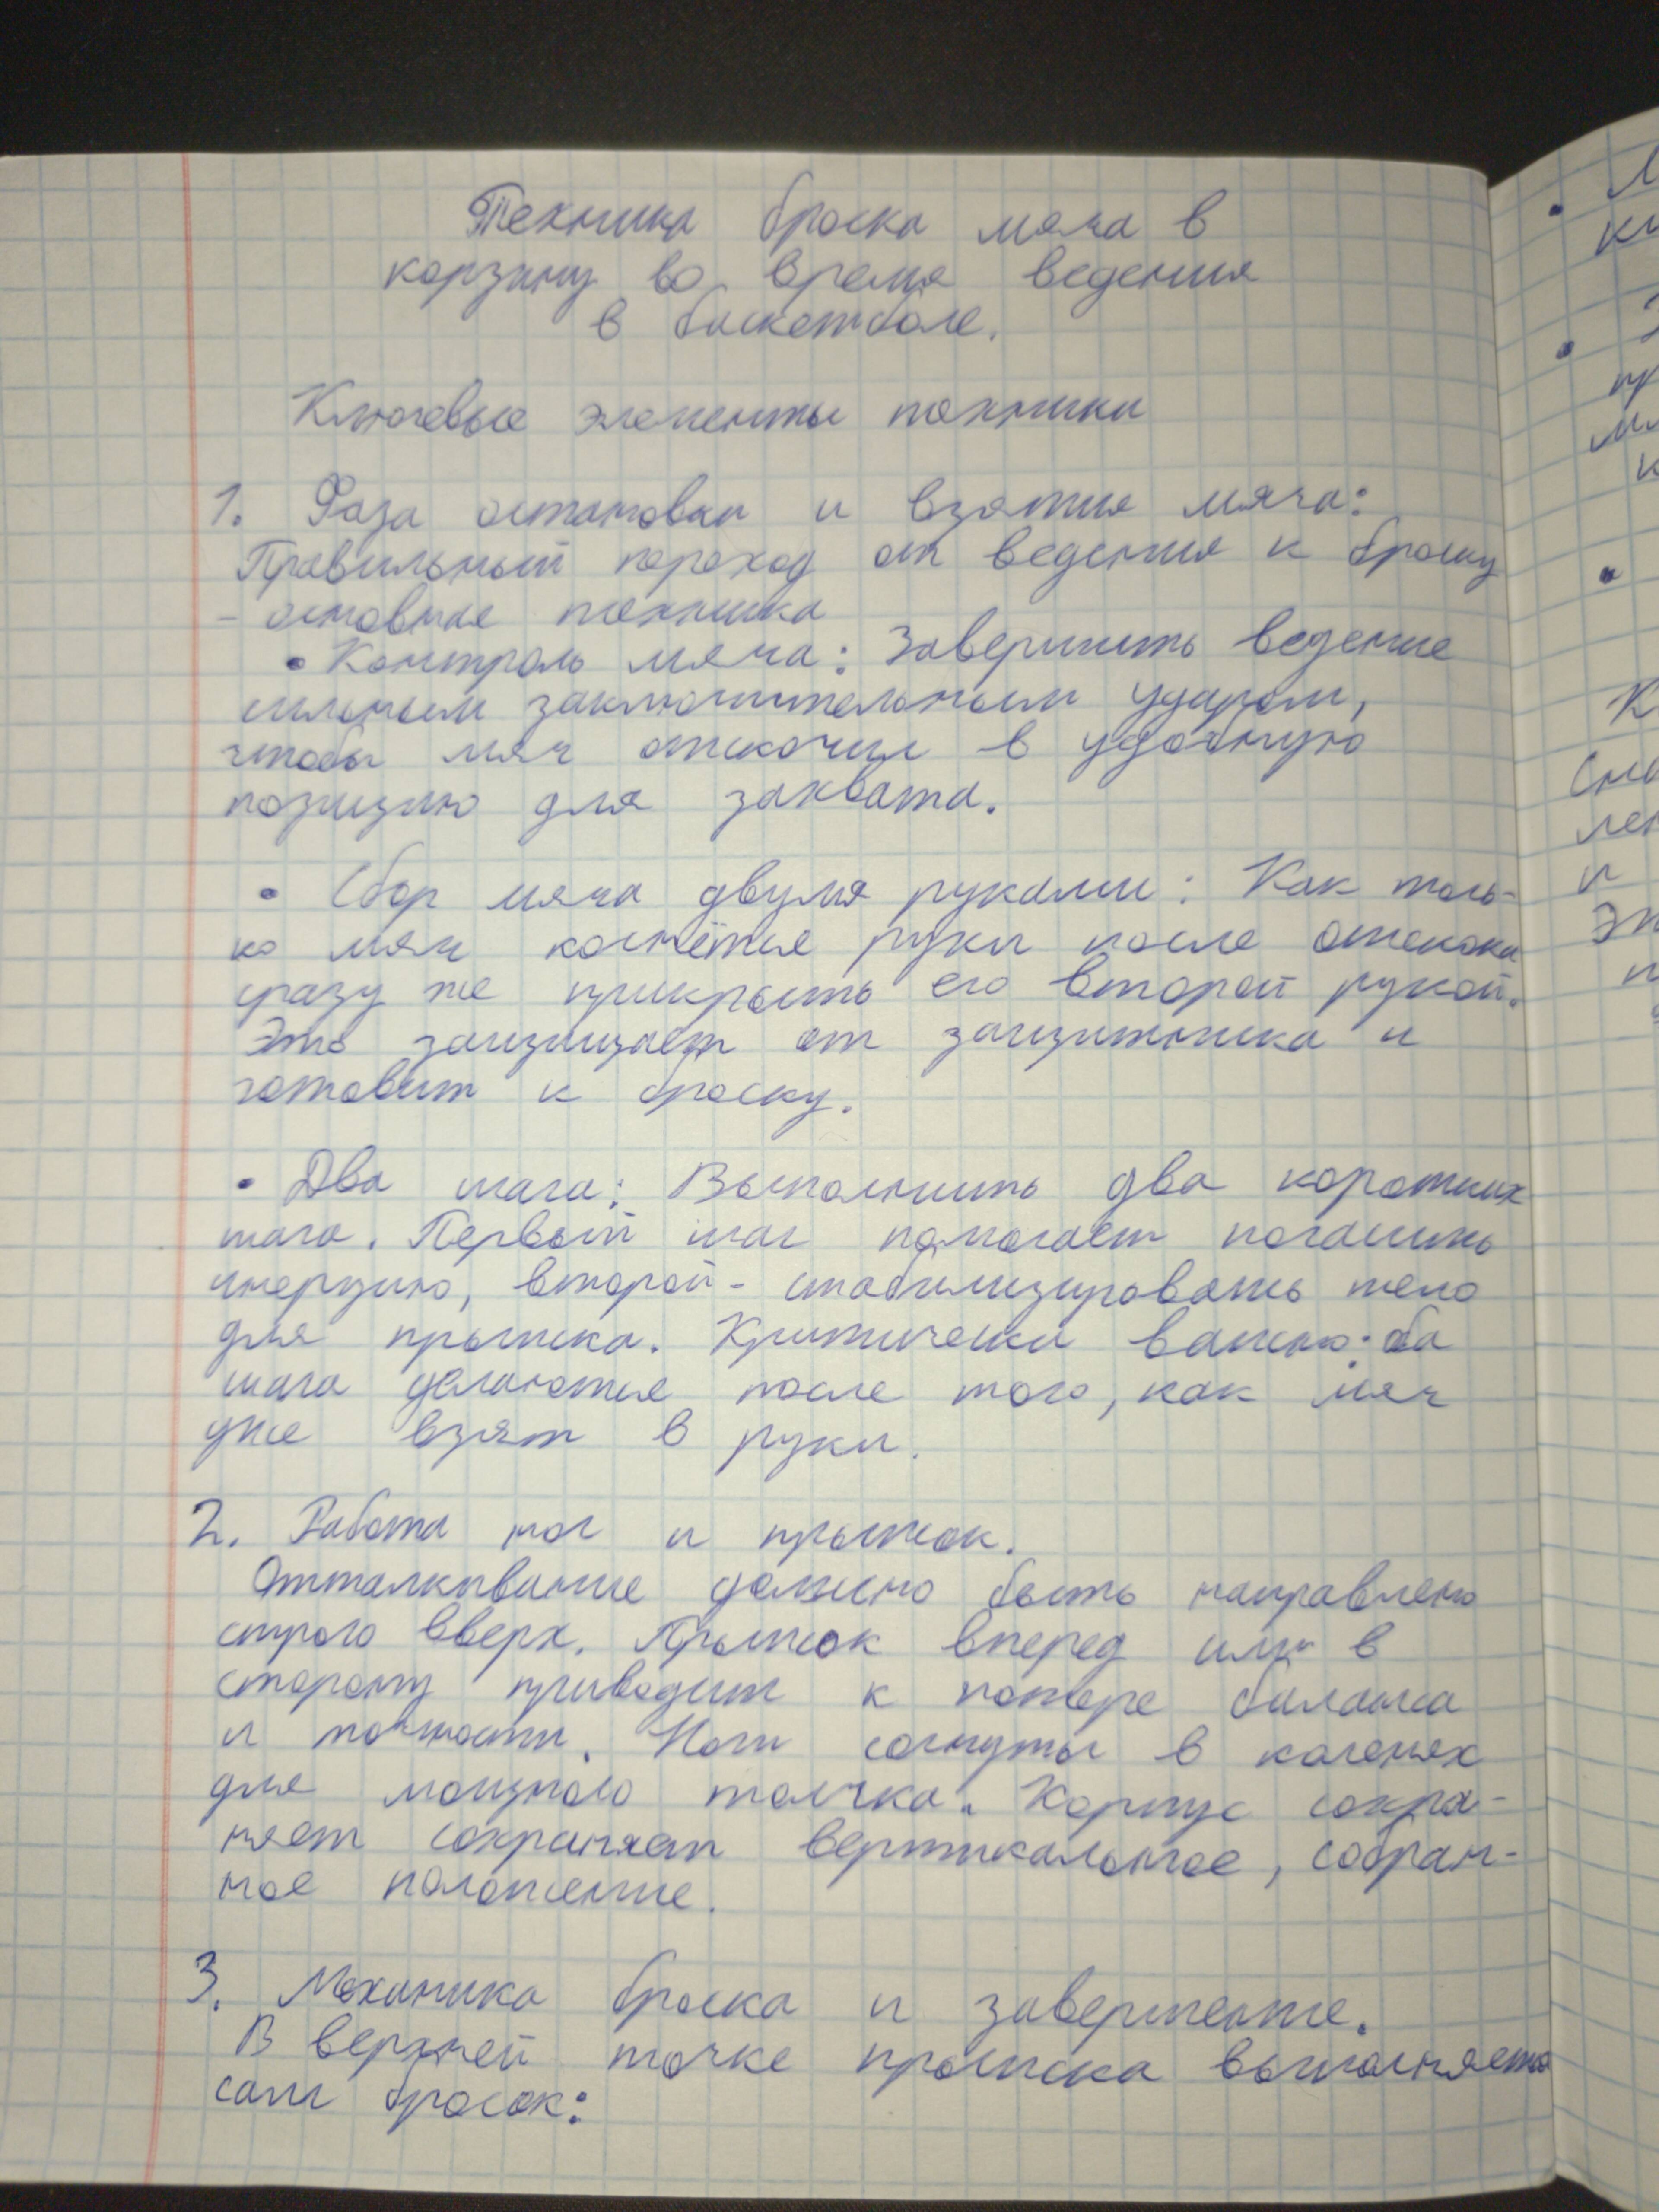 Техника броска мяча в
корзину во время ведения
в баскетболе.
Ключевые элементы техники
1. Фаза остановки и взятия мяча:
Правильный переход от ведения к броску
- основная техника
• Контроль мяча: Завершить ведение
сильным заключительным ударом,
чтобы мяч отскочил в удобную
позицию для захвата.
• Сбор мяча двумя руками: Как толь-
ко мяч коснётся руки после отскока
сразу же прикрыть его второй рукой.
Это защищает от защитника и
готовит к броску.
• Два шага: Выполнить два коротких
шага. Первый шаг помогает погасить
инерцию, второй - стабилизировать тело
для прыжка. Критически важно: оба
шага делаются после того, как мяч
уже взят в руки.
2. Работа ног и прыжок.
Отталкивание должно быть направлено
строго вверх. Прыжок вперед или в
сторону приводит к потере баланса
и точности. Ноги согнуты в коленях
для мощного толчка. Корпус сохра-
няет сохраняет вертикальное, собран-
ное положение.
3. Механика броска и завершение.
В верхней точке прыжка выполняется
сам бросок: